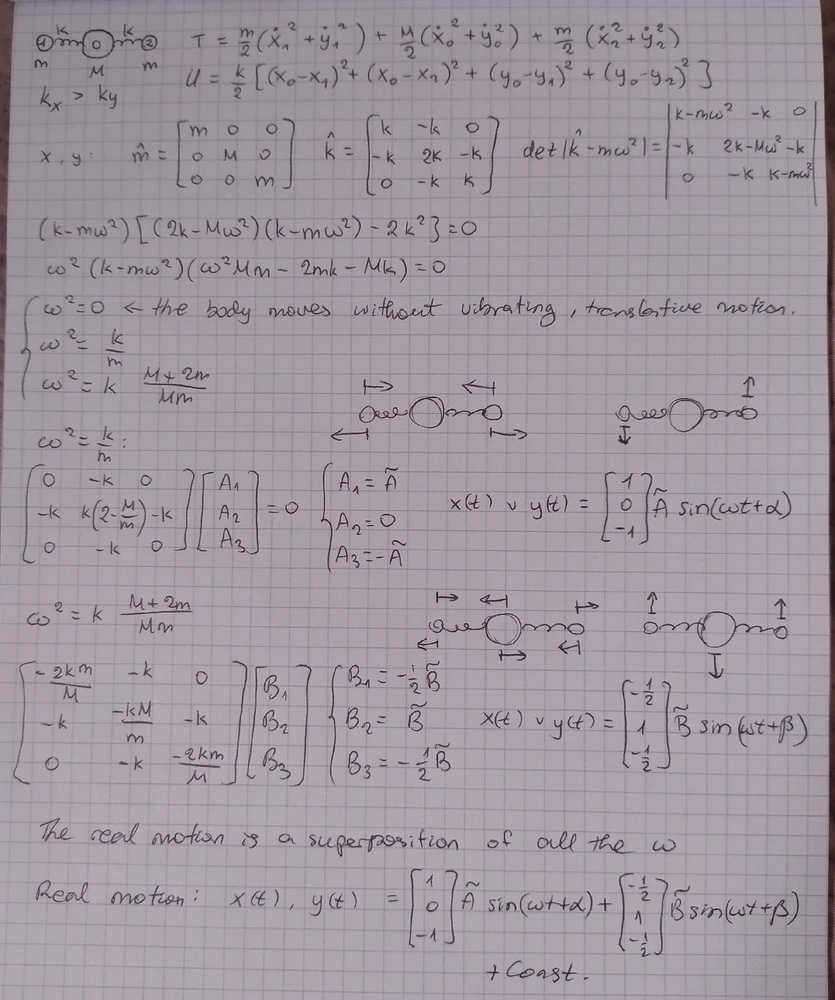 k k
1 0 2
m M m
T = m/2 (ẋ₁² + ẏ₁²) + M/2 (ẋ₀² + ẏ₀²) + m/2 (ẋ₂² + ẏ₂²)
U = k/2 [(x₀-x₁)² + (x₀-x₂)² + (y₀-y₁)² + (y₀-y₂)²}
kₓ > ky
x, y: m̂ = [m 0 0; 0 M 0; 0 0 m] k̂ = [k -k 0; -k 2k -k; 0 -k k] det|k̂ - mω²| = |k-mω² -k 0; -k 2k-Mω² -k; 0 -k k-mω²|
(k-mω²)[(2k-Mω²)(k-mω²) - 2k²} = 0
ω² (k-mω²)(ω²Mm - 2mk - Mk) = 0
{ω² = 0 ← the body moves without vibrating, translative motion.
ω² = k/m
ω² = k (M+2m)/(Mm)
ω² = k/m :
[0 -k 0; -k k(2-M/m) -k; 0 -k 0] [A₁; A₂; A₃] = 0 {A₁ = Ã; A₂ = 0; A₃ = -Ã x(t) ∨ y(t) = [1; 0; -1] Ã sin(ωt+α)
ω² = k (M+2m)/(Mm)
[-2km/M -k 0; -k -kM/m -k; 0 -k -2km/M] [B₁; B₂; B₃] {B₁ = -1/2 B̃; B₂ = B̃; B₃ = -1/2 B̃ x(t) ∨ y(t) = [-1/2; 1; -1/2] B̃ sin(ωt+β)
The real motion is a superposition of all the ω
Real motion: x(t), y(t) = [1; 0; -1] Ã sin(ωt+α) + [-1/2; 1; -1/2] B̃ sin(ωt+β)
+ Const.